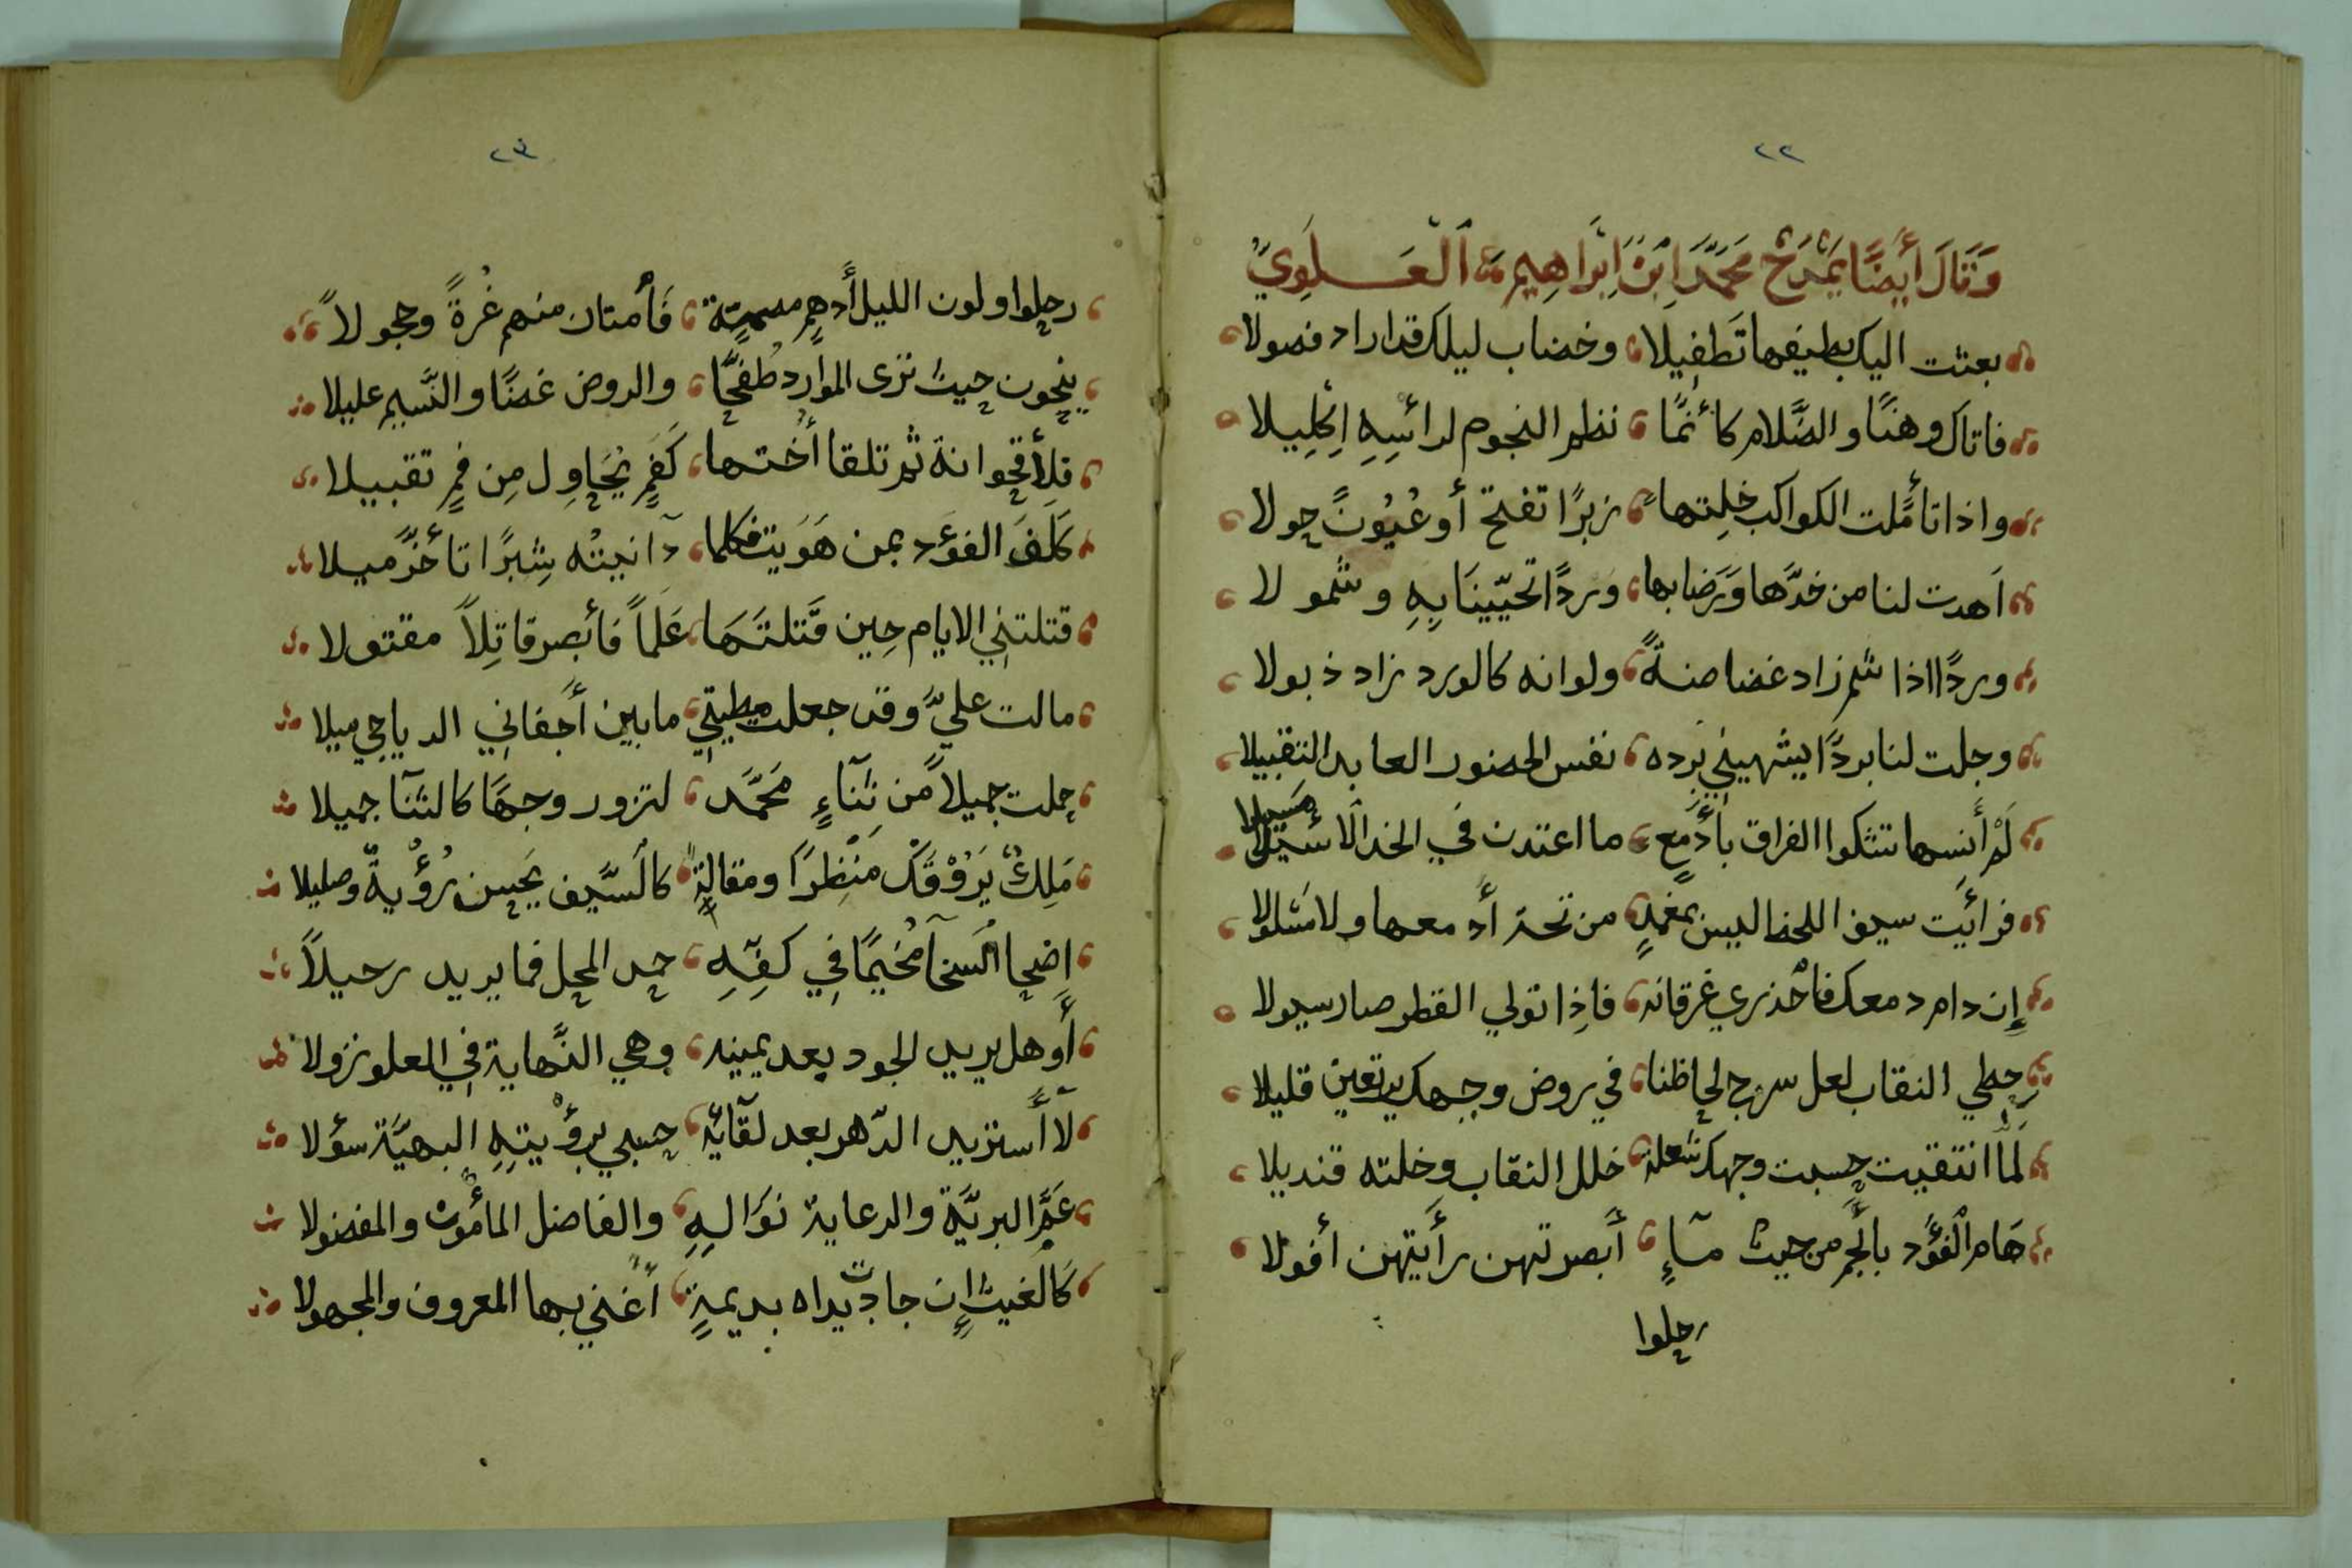 ٢٢
وَقَالَ أَيْضًا يَمْدَحُ مُحَمَّدَ ابْنَ إِبْرَاهِيمَ الْعَلَوِيّ
بعثت اليك بطيفها تَطفِيلا وخضاب ليلك قد اراد فصولا
فاتاك وهنًا والضَّلام كأنمَّا نظم النجوم لرائسِهِ اِكْلِيلا
واذا تأمَّلت الكواكب خلِتها زبرًا تفتح أو عُيُونًا حولا
اَهدت لنا من خدَّها وَرَضابها وَردًا تحيّينَا بِهِ وشمولا
وردًا اذا شم زاد غضاضةً ولوانه كالورد زاد ذبولا
وجلت لنا بردًا يشهيني بَرده نفس الحصور العابد التقبيلا
لَمْ أَنسها تشكوا الفراق بأَدْمع ما اعتدن في الخد الَاسئيلا مسيولا
فرائَيت سيف اللحظ ليس بمغمدٍ من تحت أدمعها ولا مسَلولا
إِن دام دمعك فأحْذري غرقانه فاذِا تولي القطر صار سيولا
حِطي النقاب لعل سرح لحِاظنا في روض وجهك يرتعين قليلا
لَمّا انتقيت حسبت وجهك شعلة خلل النقاب وخلته قنديلا
هَام الفؤَد بأَنجَم من حيث مآءٍ أَبصرتهن رأَيتهن أفولا
رحلوا
٢٣
رحلوا ولون الليل أَدهم مصمتة فَأمتان منهم غُرةً وحجولاً
ينحون حيث تزى الموارد طُفحًّا والروض غضًا والنَّسيم عليلا
فلِأقحوانة ثم تلقا أُختها كَفَمٍ يُحَاوِل مِن فمٍ تقبيلا
كَلَفَ الفؤَد بمن هَوَيت فكلما دآنيتُه شِبرًا تأخَّر ميلا
قتلتنِي الايام حِين قَتلتَهَا عَلَماً فأبصر قاتِلاً مقتولا
مالت عليَّ وقد جعلت مطيتيِ مابين أَجفاني الدياجي ميلا
حملت جميلاً من ثنَآءٍ مُحَمَّد لتزور وجهًا كالثنآ جميلا
مَلِكُ يَرُوْقَكْ مَنْظِرَا ومقالةٍ كالسَّيف يَحسن رُؤْيةً وصليلا
اِضحا السخآ مُخيمًا في كفَّهِ حمد المحل فما يريد رحيلاً
أَو هل يريد الجود بعد يمينه وهي النَّهاية في العلو نزولا
لآ أَستزيد الدّهر بعد لقَآئه حسبي برؤْيتهِ البهيَّة سؤلا
عَمَّ البريَّة والرعاية نوَالهِ والفاضل المأمون والمفضولا
كَالغيث إِن جادت يداه بديمةٍ اَغني بها المعروف والمجهولا